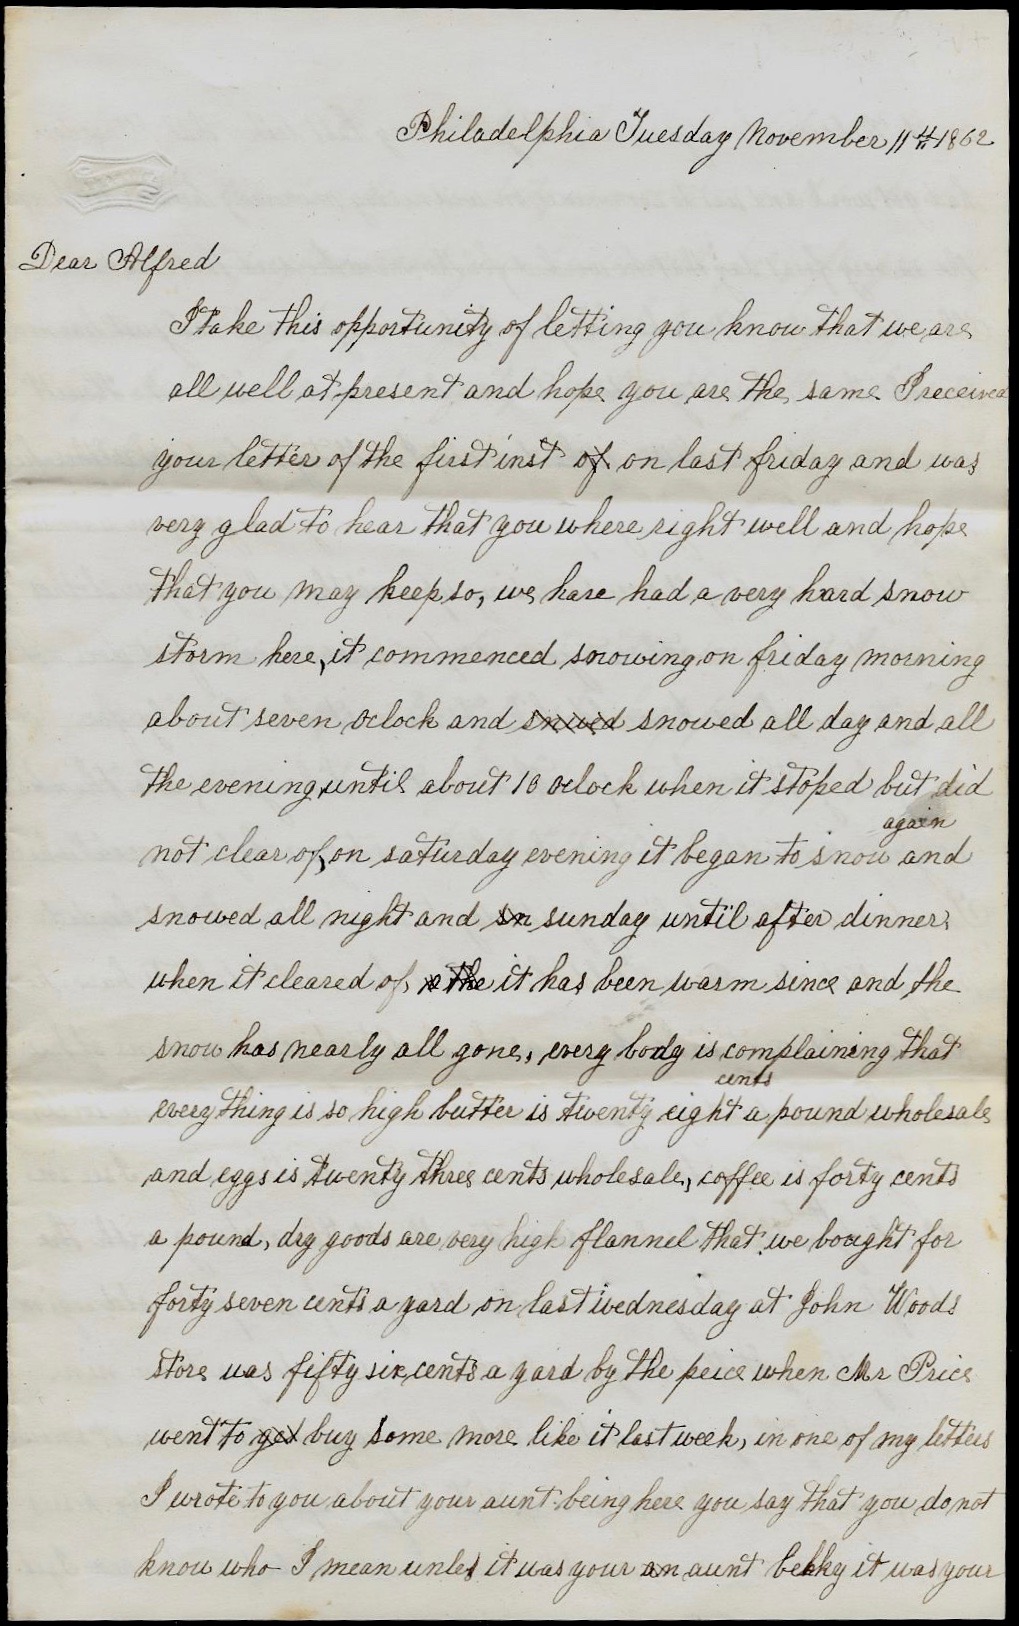 Philadelphia Tuesday November 11th 1862
Dear Alfred
I take this opportunity of letting you know that we are
all well at present and hope you are the same I received
your letter of the first inst of on last friday and was
very glad to hear that you where right well and hope
that you may keep so, we have had a very hard snow
storm here, it commenced snowing on friday morning
about seven oclock and snwed snowed all day and all
the evening until about 10 oclock when it stoped but did
again
not clear of, on saturday evening it began to snow and
snowed all night and sn sunday until after dinner
when it cleared of, the it has been warm since and the
snow has nearly all gone, every body is complaining that
cents
every thing is so high butter is twenty eight a pound wholesale
and eggs is twenty three cents wholesale, coffee is forty cents
a pound, dry goods are very high flannel that we bought for
forty seven cents a yard on last wednesday at John Woods
store was fifty six cents a yard by the peice when Mr Price
went to get buy some more like it last week, in one of my letters
I wrote to you about your aunt being here you say that you do not
know who I mean unles it was your an aunt bekky it was your